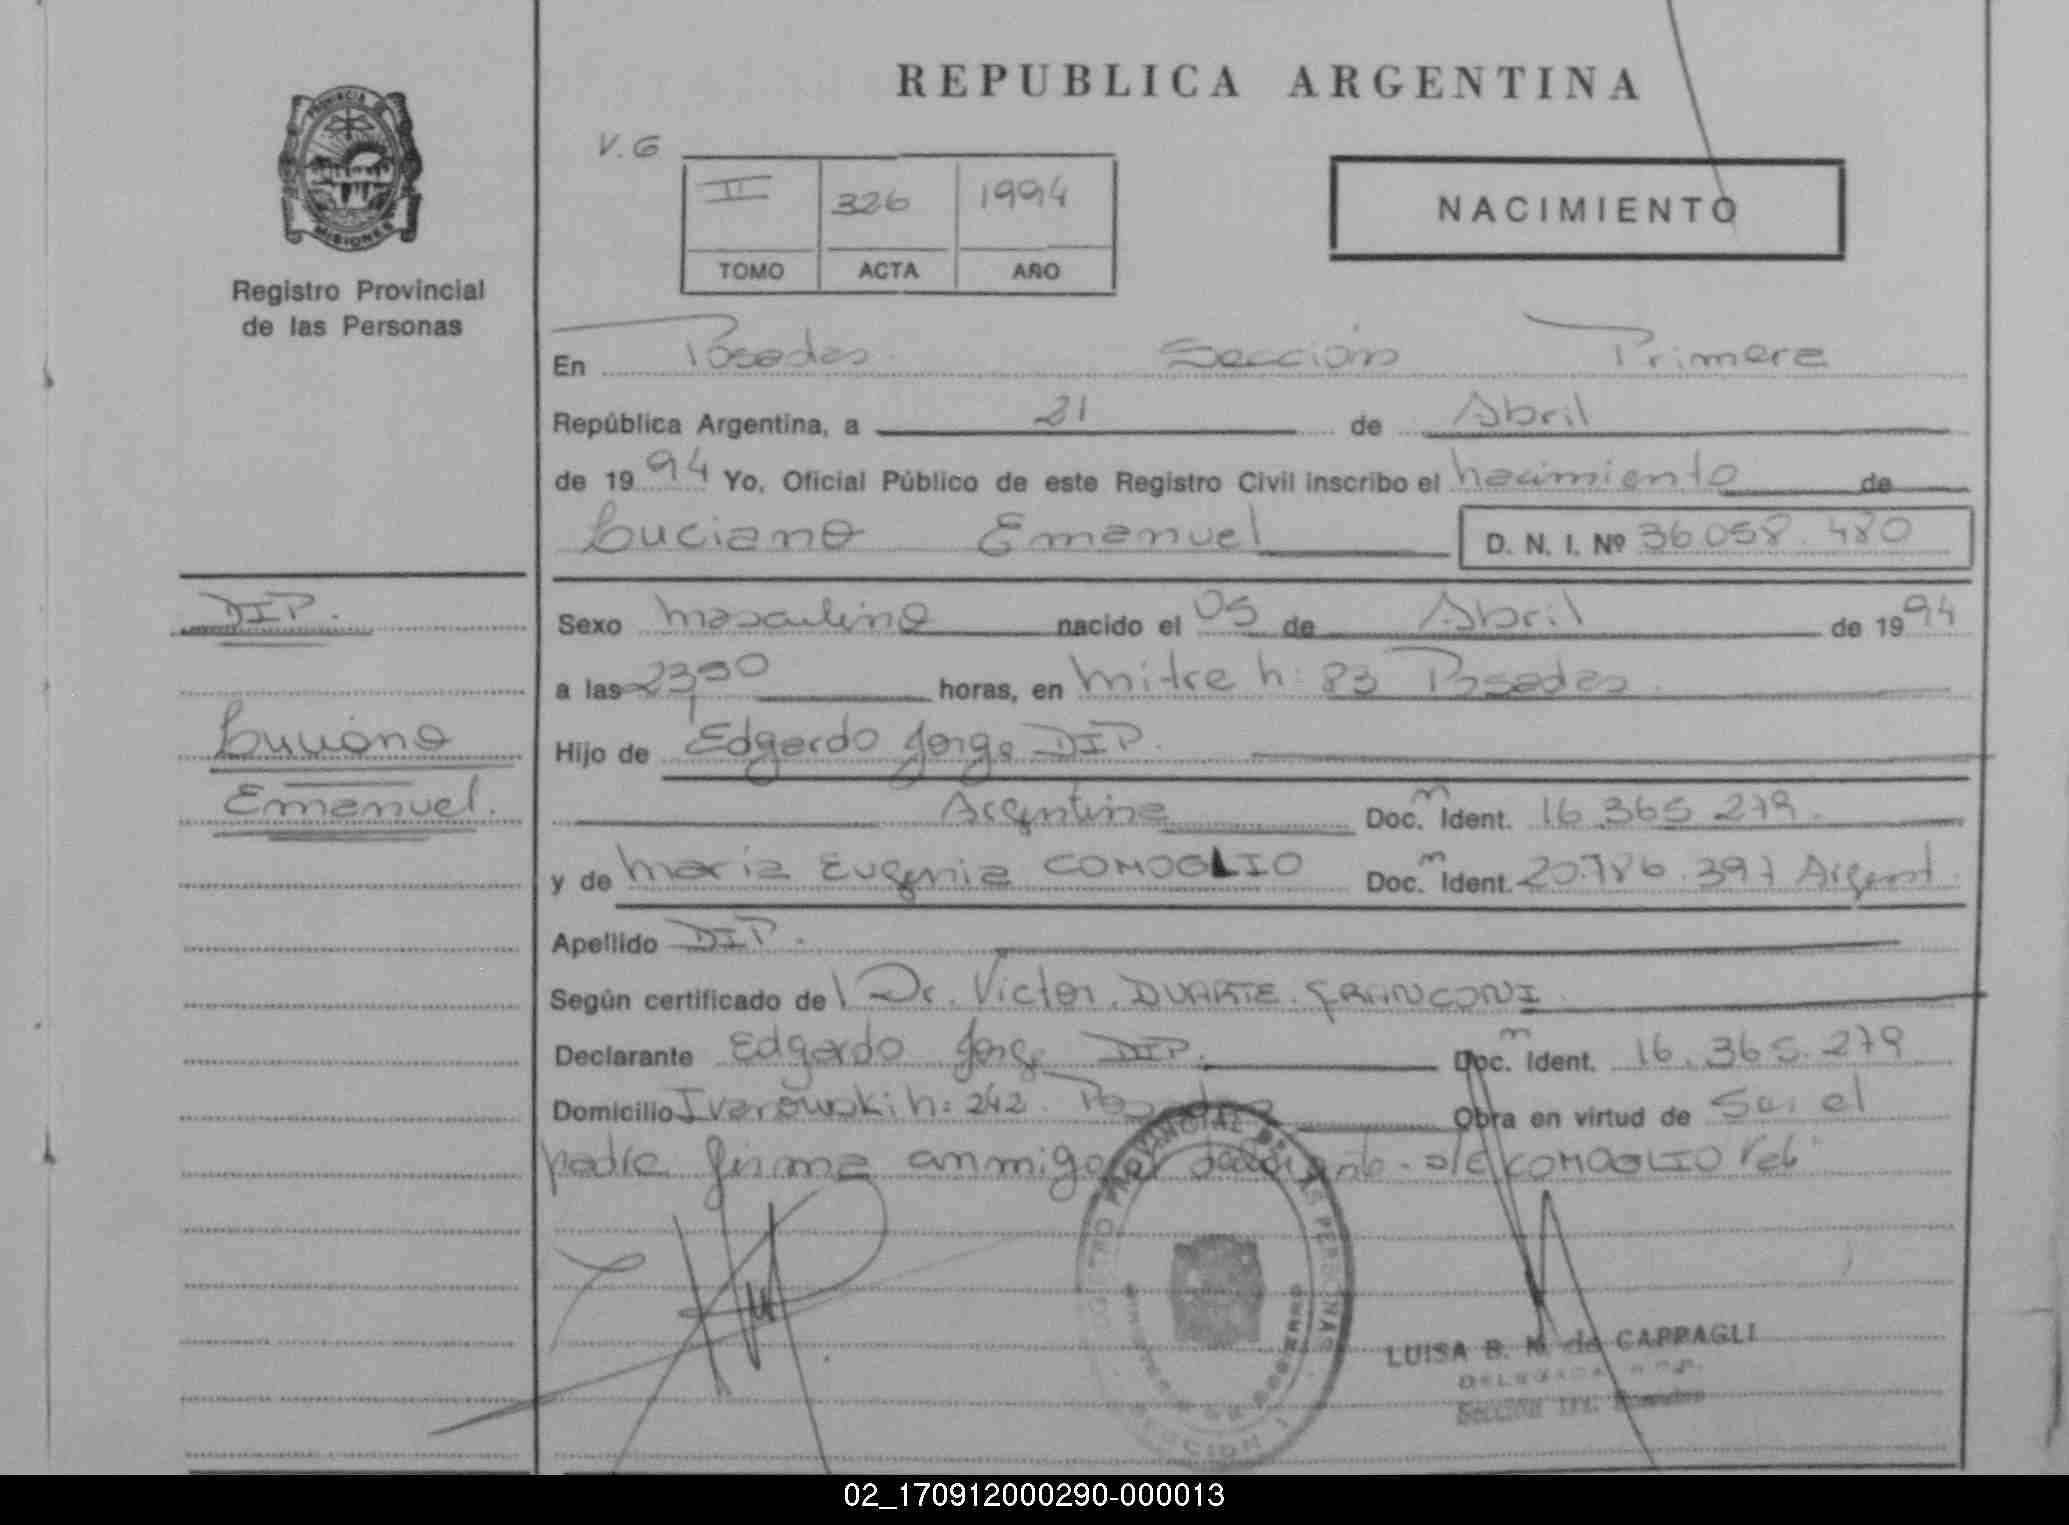 REPUBLICA ARGENTINA
PROVINCIA DE
MISIONES
Registro Provincial
de las Personas
V.G
II 326 1994
TOMO ACTA AÑO
NACIMIENTO
En Posadas Sección Primera
República Argentina, a 21 de Abril
de 1994 Yo, Oficial Público de este Registro Civil inscribo el nacimiento de
Luciano Emanuel D. N. I. Nº 36.058.480
DIP.
Luciano
Emanuel.
Sexo masculino nacido el 05 de Abril de 1994
a las 2330 horas, en Mitre n: 83 Posadas.
Hijo de Edgardo Jorge DIP.
Argentina Doc. m Ident. 16.365.279.
y de Maria Eugenia COMOGLIO Doc. m Ident. 20.786.397 Argent.
Apellido DIP.
Según certificado del Dr. Victor DUARTE FRANCONI.
Declarante Edgardo Jorge DIP. Doc. m Ident. 16.365.279
Domicilio Ivanowski n: 242. Posadas Obra en virtud de Ser el
padre firma conmigo el declarante. s/e COMOGLIO Vale
REGISTRO PROVINCIAL DE LAS PERSONAS
SECCION 1
LUISA B. N. de CAPPAGLI
DELEGADA
02_170912000290-000013